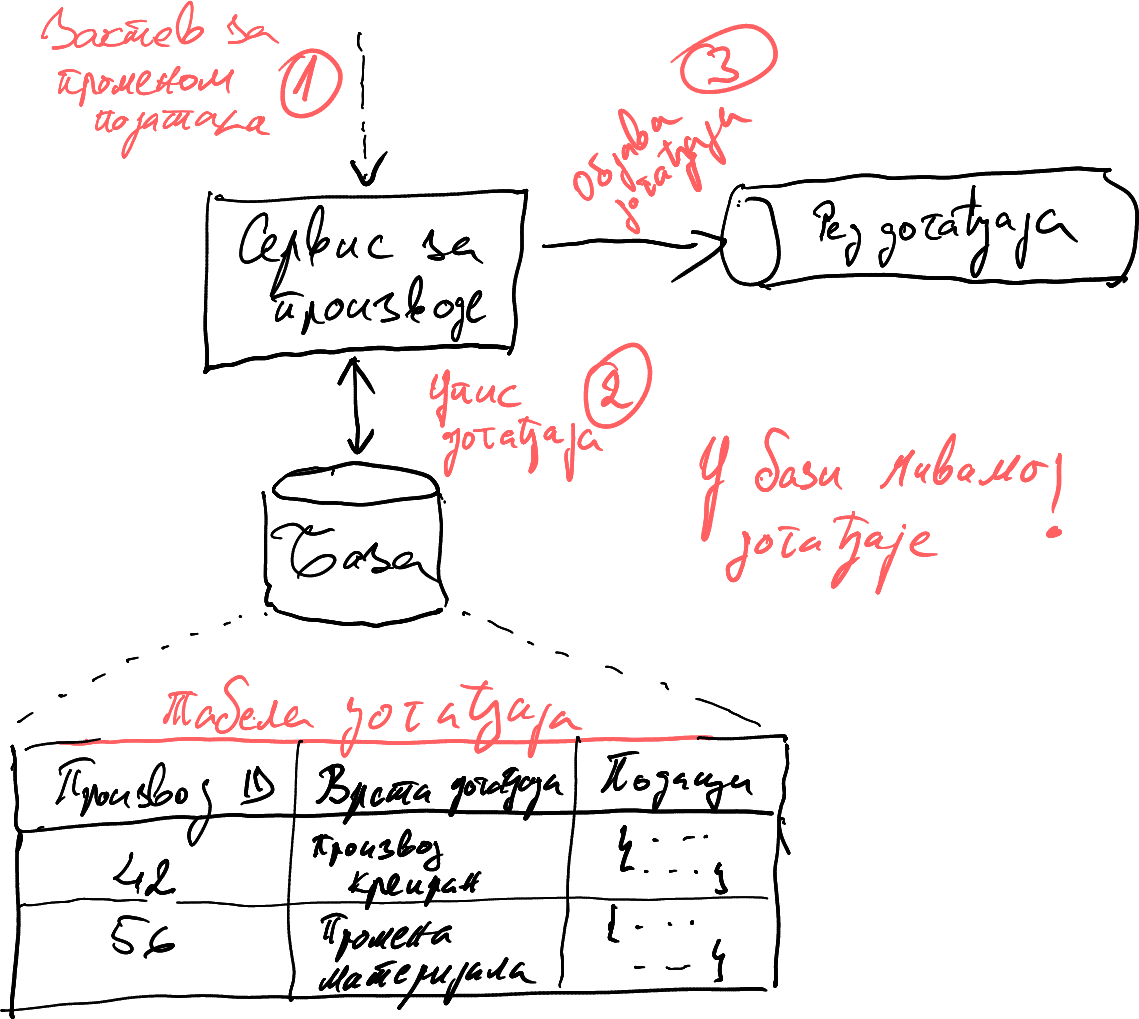 Захтев за
променом
података
1
3
Објава
догађаја
Сервис за
производе
Ред догађаја
Упис
догађаја
2
У бази чувамо
догађаје!
База
Табела догађаја
Производ ID
Врста догађаја
Подаци
42
Производ
креиран
{ . . .
. . . }
56
Промена
материјала
{ . . .
. . . }